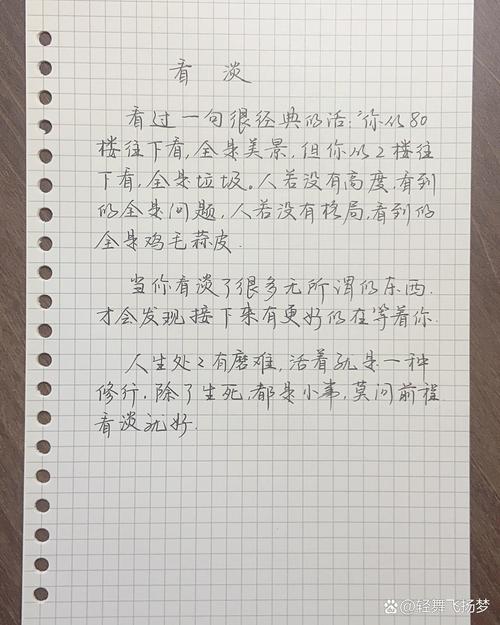 看淡
看过一句很经典的话:"你从80
楼往下看,全是美景,但你从2楼往
下看,全是垃圾。人若没有高度,看到
的全是问题,人若没有格局,看到的
全是鸡毛蒜皮.
当你看淡了很多无所谓的东西.
才会发现接下来有更好的在等着你.
人生处々有磨难,活着就是一种
修行.除了生死,都是小事,莫问前程
看淡就好.
@轻舞飞扬梦